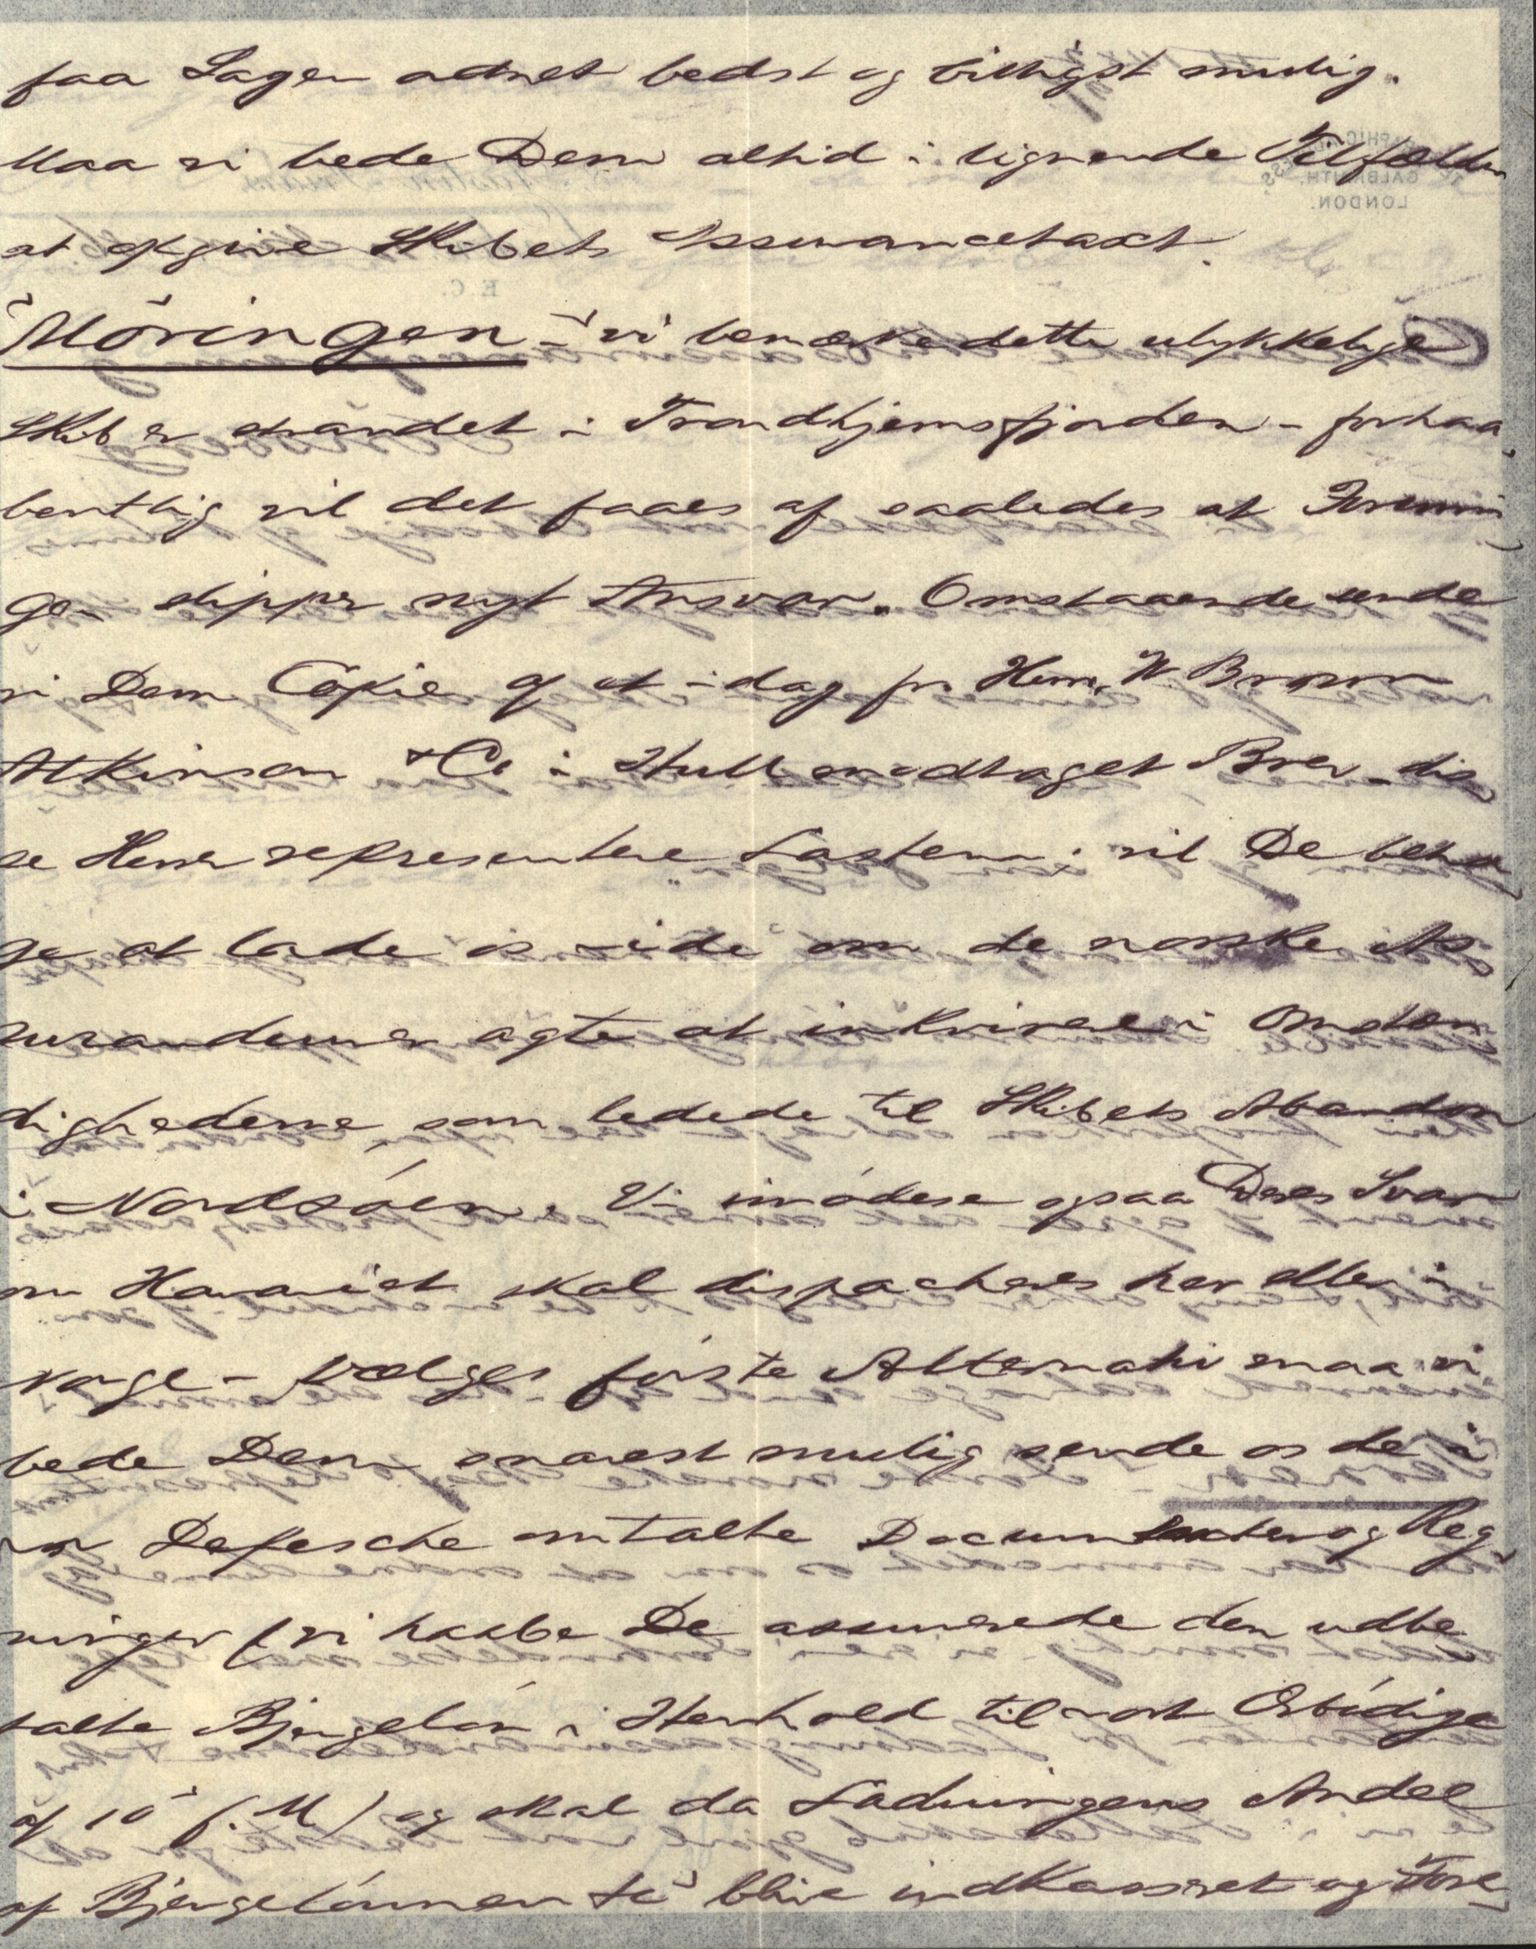 faa Sagen ordnet bedst og billigst mulig.
Maa vi bede Dem altid i lignende Tilfælder
at opgive Skibets Assurancetaxt.
"Möringen" – vi bemærke dette ulykkelige
Skib er strandet i Trondhjemsfjorden – forhaa-
bentlig vil det faaes af saaledes at Forenin-
gen slipper nyt Ansvar. Omstaaende sende
vi Dem Copie af et idag fra Herrer W Brown
Atkinson & Co i Hull modtaget Brev – dis-
se Herrer representere Lasten; vil De beha-
ge at lade os vide om de norske As-
surandeurer agte at inkvirere i Omstæn-
dighederne, som ledede til Skibets Abandon
i Nordsøen. Vi imødese ogsaa Deres Svar
om Havariet skal dispacheres her eller i
Norge – vælges første Alternativ maa vi
bede Dem snarest mulig sende os de i
vor Depesche omtalte Documenter og Reg-
ninger (vi haabe De assurerede den udbe-
talte Bjergeløn i Henhold til vort Ærbødige
af 10' f. M.) og skal da Ladningens Andel
af Bjergelønnen blive indkasseret og Fore-